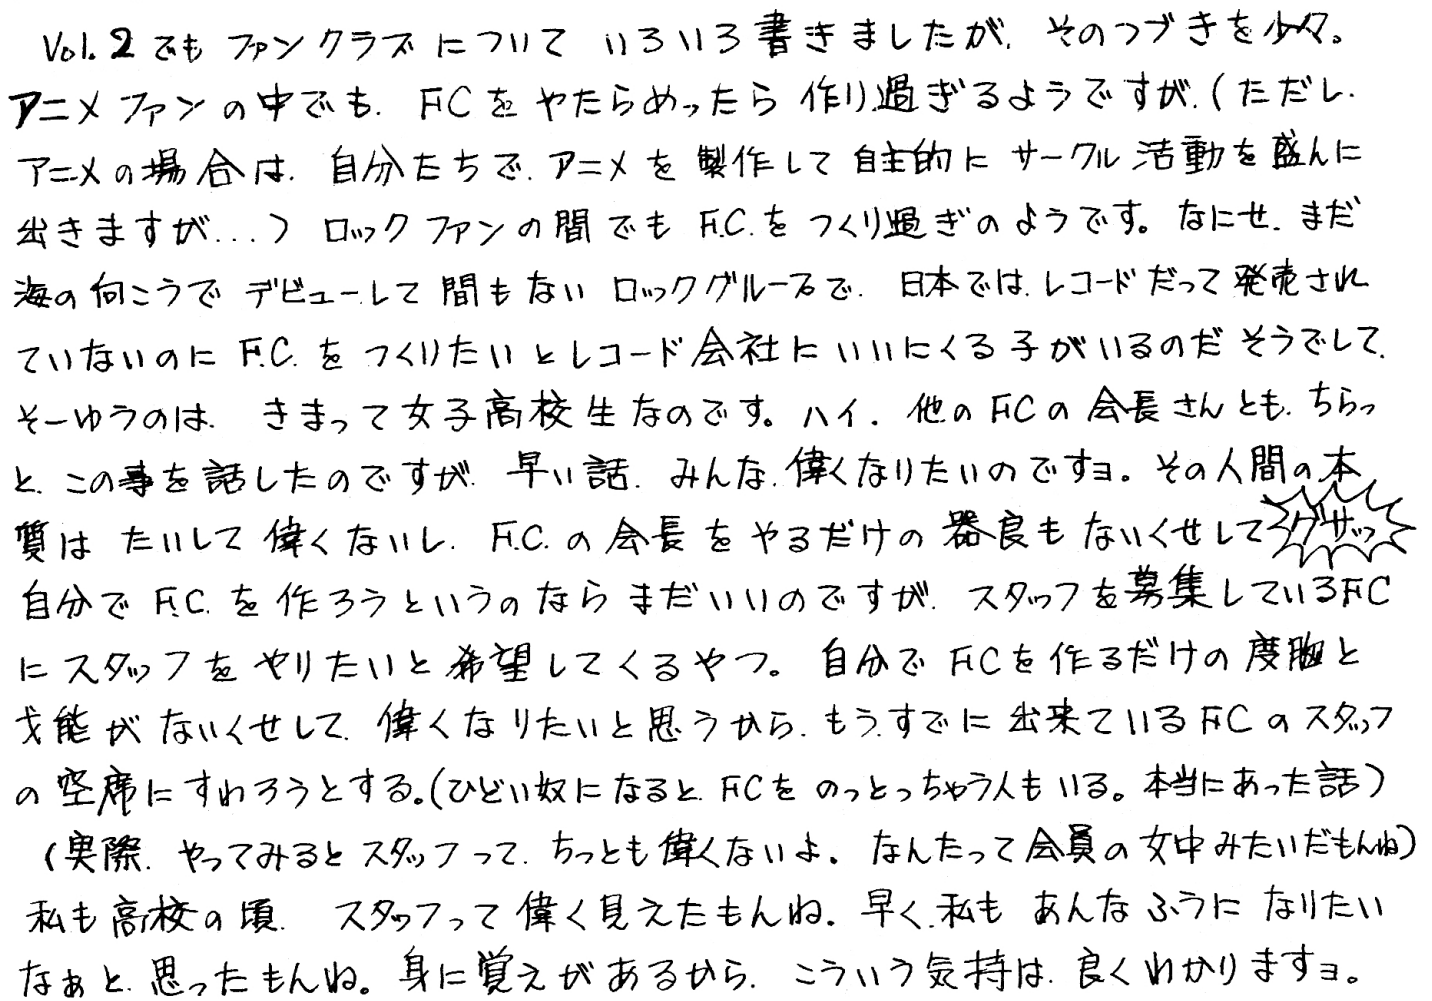 Vol.2でも ファンクラブについて いろいろ書きましたが、そのつづきを少々。
アニメファンの中でも、FCをやたらめったら作り過ぎるようですが、(ただし、
アニメの場合は、自分たちで、アニメを製作して自主的にサークル活動を盛んに
出きますが...) ロックファンの間でもF.C.をつくり過ぎのようです。なにせ、まだ
海の向こうでデビューして間もないロックグループで、日本では、レコードだって発売され
ていないのにF.C.をつくりたいとレコード会社にいいにくる子がいるのだそうでして、
そーゆうのは、きまって女子高校生なのです。ハイ、他のFCの会長さんとも、ちらっ
と、この事を話したのですが、早い話、みんな、偉くなりたいのですョ。その人間の本
質はたいして偉くないし、F.C.の会長をやるだけの器良もないくせして グサッ
自分でF.C.を作ろうというのならまだいいのですが、スタッフを募集しているFC
にスタッフをやりたいと希望してくるやつ。自分でFCを作るだけの度胸と
才能がないくせして、偉くなりたいと思うから、もう、すでに出来ているFCのスタッフ
の空席にすわろうとする。(ひどい奴になると、FCをのっとっちゃう人もいる。本当にあった話)
(実際、やってみるとスタッフって、ちっとも偉くないよ。なんたって会員の女中みたいだもんね)
私も高校の頃、スタッフって偉く見えたもんね。早く、私もあんなふうになりたい
なぁと、思ったもんね。身に覚えがあるから、こういう気持は、良くわかりますョ。